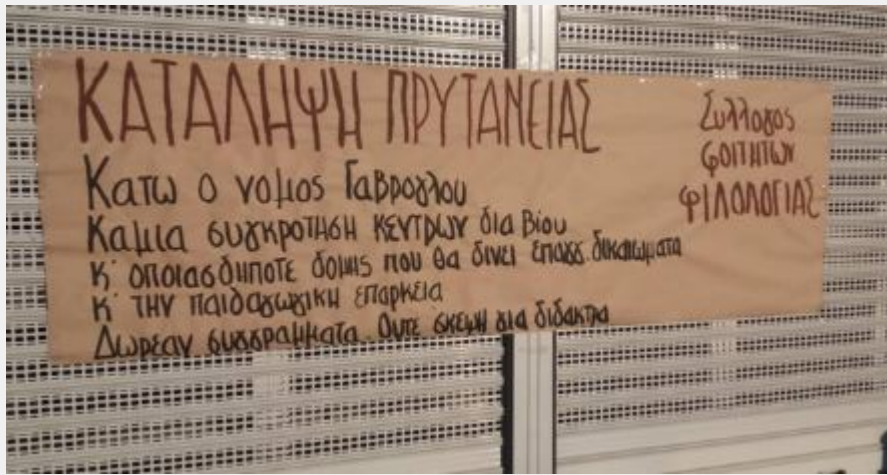 ΚΑΤΑΛΗΨΗ ΠΡΥΤΑΝΕΙΑΣ
Κατω ο νομος Γαβρογλου
Καμια συγκροτηση κεντρων δια βίου
κ' οποιασδηποτε δομης που θα δινει επαγγ. δικαιωματα
κ' την παιδαγωγικη επαρκεια
Δωρεαν συγγραμματα. Ουτε σκεψη για διδακτρα
Συλλογος
φοιτητων
φιλολογιας